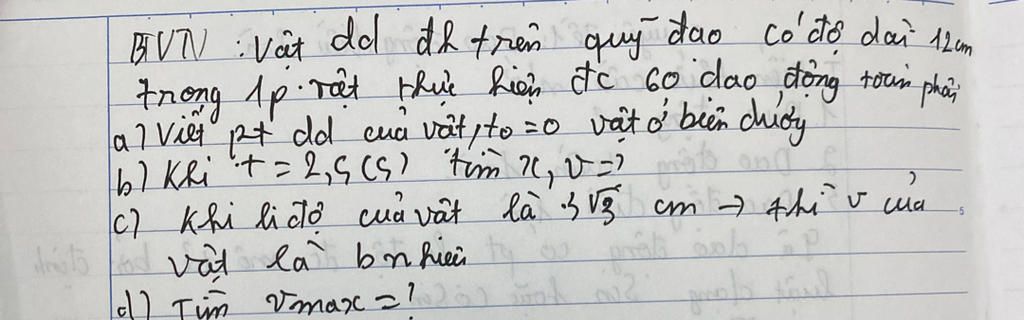 BTVN : Vật dd đh trên quỹ đạo có độ dài 12cm
trong 1p. vật thực hiện đc 60 dao động toàn phần
a) Viết pt dd của vật, to = 0 vật ở biên dương
b) Khi t = 2,5 (s) tìm x, v = ?
c) Khi li độ của vật là 3√3 cm → thì v của
vật là b nhiêu
d) Tìm vmax = ?